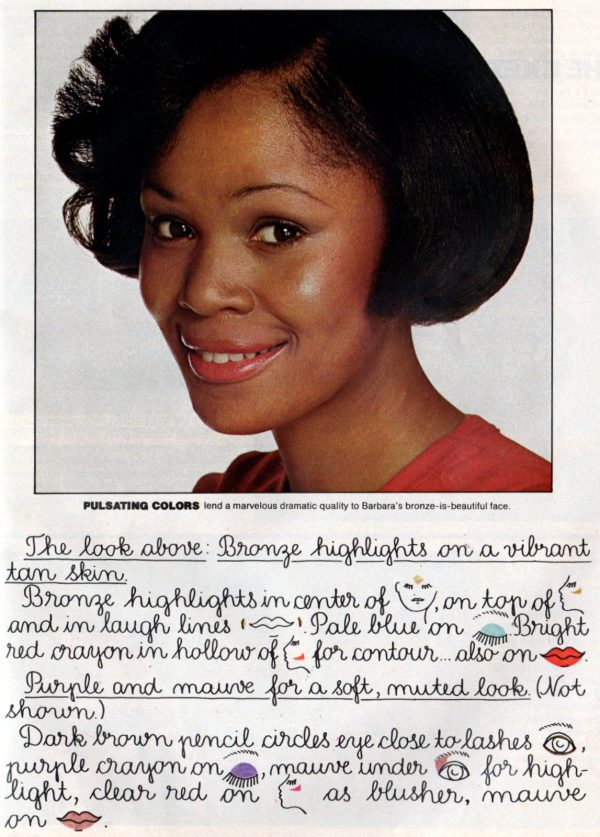 PULSATING COLORS lend a marvelous dramatic quality to Barbara's bronze-is-beautiful face.
The look above: Bronze highlights on a vibrant
tan skin.
Bronze highlights in center of , on top of
and in laugh lines . Pale blue on Bright
red crayon in hollow of for contour... also on .
Purple and mauve for a soft, muted look. (Not
shown.)
Dark brown pencil circles eye close to lashes ,
purple crayon on , mauve under for high-
light, clear red on as blusher, mauve
on .